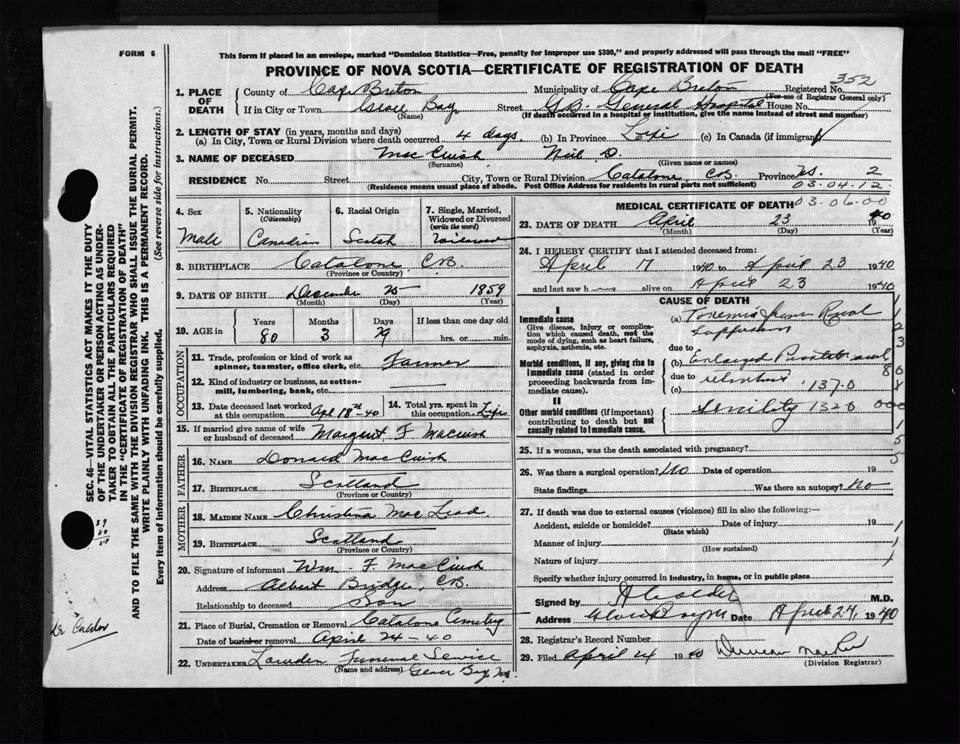 FORM 6
This form if placed in an envelope, marked "Dominion Statistics—Free, penalty for improper use $300," and properly addressed will pass through the mail "FREE"
PROVINCE OF NOVA SCOTIA—CERTIFICATE OF REGISTRATION OF DEATH
352
SEC. 46—VITAL STATISTICS ACT MAKES IT THE DUTY
OF THE UNDERTAKER OR PERSON ACTING AS UNDER-
TAKER TO OBTAIN ALL THE PARTICULARS REQUIRED
IN THE "CERTIFICATE OF REGISTRATION OF DEATH"
AND TO FILE THE SAME WITH THE DIVISION REGISTRAR WHO SHALL ISSUE THE BURIAL PERMIT.
WRITE PLAINLY WITH UNFADING INK. THIS IS A PERMANENT RECORD.
Every item of information should be carefully supplied. (See reverse side for instructions.)
1. PLACE OF DEATH County of Cape Breton Municipality of Cape Breton Registered No.
(For use of Registrar General only)
If in City or Town Glace Bay Street G.B. General Hospital House No.
(Name) (If death occurred in a hospital or institution, give the name instead of street and number)
2. LENGTH OF STAY (in years, months and days)
(a) In City, Town or Rural Division where death occurred 4 days (b) In Province Life (c) In Canada (if immigrant)
3. NAME OF DECEASED MacCuish Neil D.
(Surname) (Given name or names)
RESIDENCE No. Street City, Town or Rural Division Catalone, C.B. Province N.S. 2
(Residence means usual place of abode. Post Office Address for residents in rural parts not sufficient) 03.04.12.
03-06-00
4. Sex Male
5. Nationality (Citizenship) Canadian
6. Racial Origin Scotch
7. Single, Married, Widowed or Divorced (write the word) Widowed
8. BIRTHPLACE Catalone, C.B.
(Province or Country)
9. DATE OF BIRTH December 25 1859
(Month) (Day) (Year)
10. AGE in Years Months Days If less than one day old
80 3 29 hrs. or min.
OCCUPATION
11. Trade, profession or kind of work as spinner, teamster, office clerk, etc. Farmer
12. Kind of industry or business, as cotton-mill, lumbering, bank, etc.
13. Date deceased last worked at this occupation Apl 18th 40
14. Total yrs. spent in this occupation Life
15. If married give name of wife or husband of deceased Margaret F. MacCuish
FATHER
16. NAME Donald MacCuish
17. BIRTHPLACE Scotland
(Province or Country)
MOTHER
18. MAIDEN NAME Christina MacLeod
19. BIRTHPLACE Scotland
(Province or Country)
20. Signature of informant Wm. F. MacCuish
Address Albert Bridge, C.B.
Relationship to deceased Son
21. Place of Burial, Cremation or Removal Catalone Cemetery
Date of burial or removal April 24-40
22. UNDERTAKER Lowden Funeral Service
(Name and address) Glace Bay, N.S.
MEDICAL CERTIFICATE OF DEATH
23. DATE OF DEATH April 23 1940
(Month) (Day) (Year)
24. I HEREBY CERTIFY that I attended deceased from:
April 17 1940 to April 23 1940
and last saw h alive on April 23 1940
CAUSE OF DEATH
I
Immediate cause
Give disease, injury or complication which caused death, not the mode of dying, such as heart failure, asphyxia, asthenia, etc.
(a)
due to
Morbid conditions, if any, giving rise to immediate cause (stated in order proceeding backwards from immediate cause).
(b) Enlarged Prostate and
due to
(c) 137.0
II
Other morbid conditions (if important) contributing to death but not causally related to immediate cause.
Senility 1320
25. If a woman, was the death associated with pregnancy?
26. Was there a surgical operation? No Date of operation 19
State findings Was there an autopsy? No
27. If death was due to external causes (violence) fill in also the following:—
Accident, suicide or homicide? Date of injury 19
(State which)
Manner of injury
(How sustained)
Nature of injury
Specify whether injury occurred in industry, in home, or in public place
Signed by M.D.
Address Date April 24, 1940
28. Registrar's Record Number
29. Filed April 24 1940
(Division Registrar)